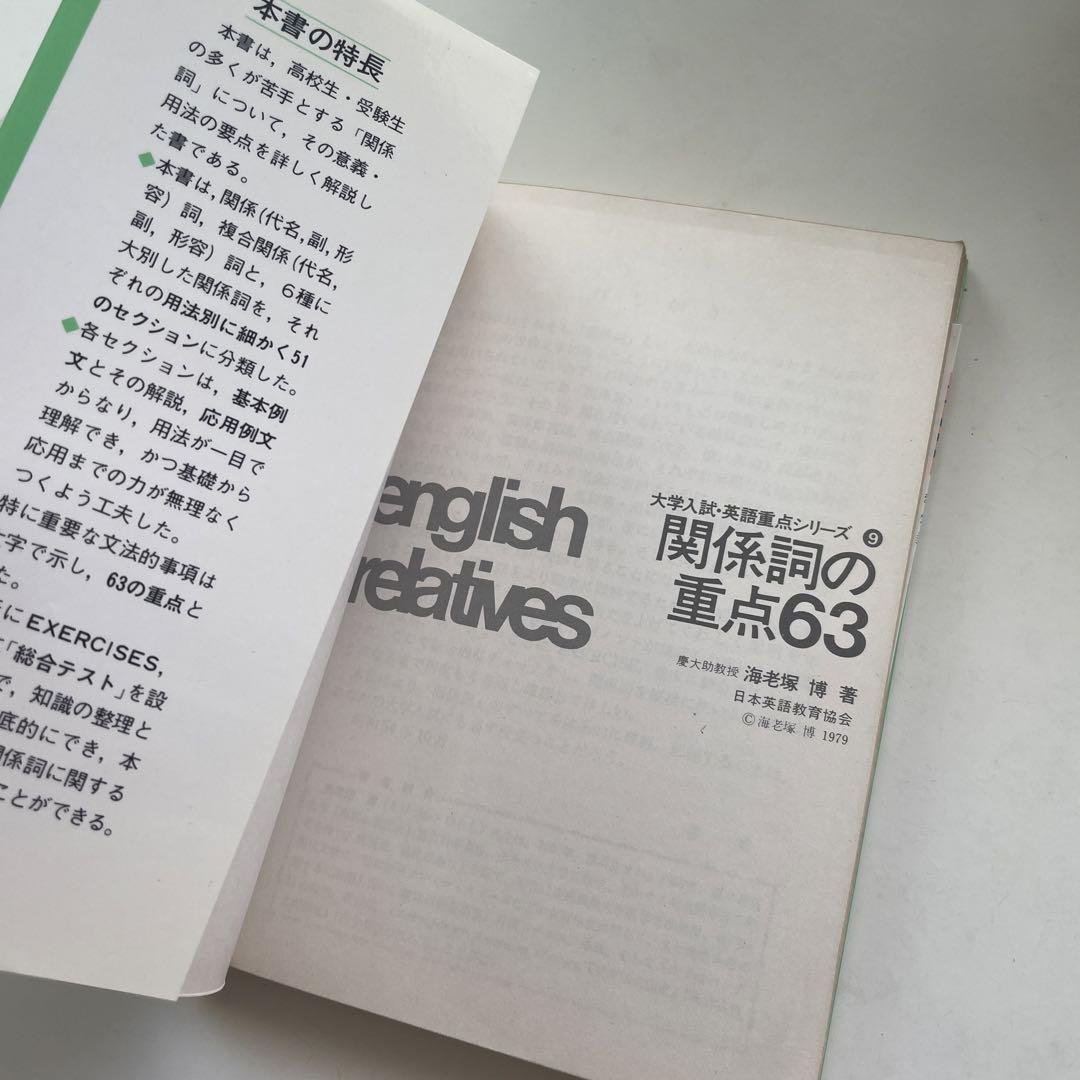 本書の特長
本書は，高校生・受験生
の多くが苦手とする「関係
詞」について，その意義・
用法の要点を詳しく解説し
た書である。
◆本書は，関係(代名,副,形
容）詞，複合関係(代名,
副，形容）詞と，６種に
大別した関係詞を，それ
ぞれの用法別に細かく51
のセクションに分類した。
◆各セクションは，基本例
文とその解説，応用例文
からなり，用法が一目で
理解でき，かつ基礎から
応用までの力が無理なく
つくよう工夫した。
特に重要な文法的事項は
字で示し，63の重点と
た。
にEXERCISES,
「総合テスト」を設
で，知識の整理と
底的にでき，本
係詞に関する
ことができる。
english
relatives
大学入試・英語重点シリーズ ❾
関係詞の
重点63
慶大助教授 海老塚 博 著
日本英語教育協会
© 海老塚 博 1979